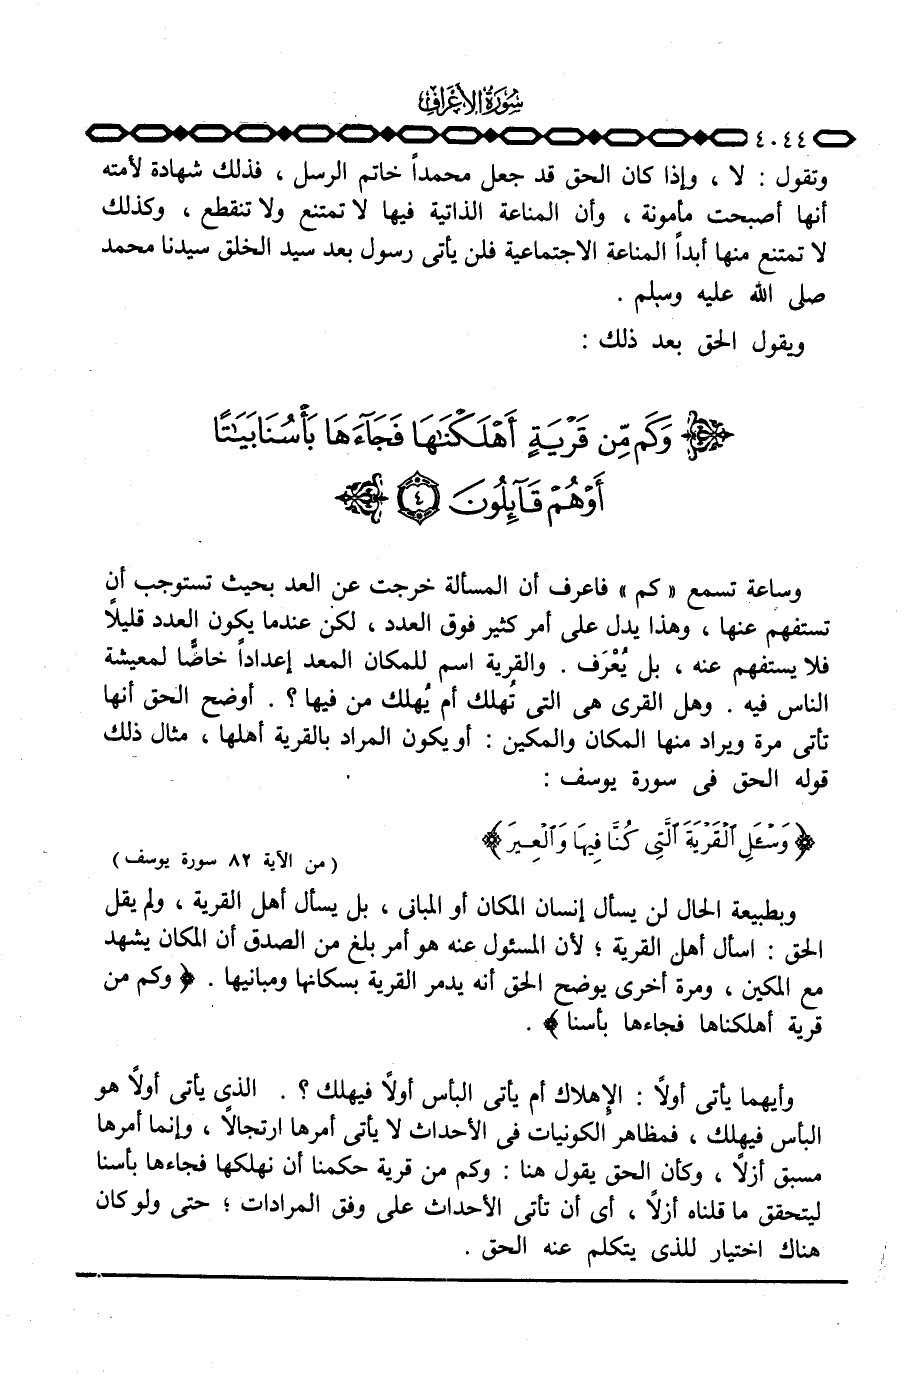 سُورَةُ الأَعْرَافِ
٤٠٤٤
وتقول : لا ، وإذا كان الحق قد جعل محمداً خاتم الرسل ، فذلك شهادة لأمته
أنها أصبحت مأمونة ، وأن المناعة الذاتية فيها لا تمتنع ولا تنقطع ، وكذلك
لا تمتنع منها أبداً المناعة الاجتماعية فلن يأتى رسول بعد سيد الخلق سيدنا محمد
صلى الله عليه وسلم .
ويقول الحق بعد ذلك :
﴿ وَكَم مِّن قَرْيَةٍ أَهْلَكْنَٰهَا فَجَآءَهَا بَأْسُنَا بَيَٰتًا
أَوْ هُمْ قَآئِلُونَ ٤ ﴾
وساعة تسمع « كم » فاعرف أن المسألة خرجت عن العد بحيث تستوجب أن
تستفهم عنها ، وهذا يدل على أمر كثير فوق العدد ، لكن عندما يكون العدد قليلاً
فلا يستفهم عنه ، بل يُعْرَف . والقرية اسم للمكان المعد إعداداً خاصًّا لمعيشة
الناس فيه . وهل القرى هى التى تُهلك أم يُهلك من فيها ؟ . أوضح الحق أنها
تأتى مرة ويراد منها المكان والمكين : أو يكون المراد بالقرية أهلها ، مثال ذلك
قوله الحق فى سورة يوسف :
﴿ وَسْـَٔلِ ٱلْقَرْيَةَ ٱلَّتِى كُنَّا فِيهَا وَٱلْعِيرَ ﴾
( من الآية ٨٢ سورة يوسف )
وبطبيعة الحال لن يسأل إنسان المكان أو المبانى ، بل يسأل أهل القرية ، ولم يقل
الحق : اسأل أهل القرية ؛ لأن المسئول عنه هو أمر بلغ من الصدق أن المكان يشهد
مع المكين ، ومرة أخرى يوضح الحق أنه يدمر القرية بسكانها ومبانيها . ﴿ وكم من
قرية أهلكناها فجاءها بأسنا ﴾ .
وأيهما يأتى أولاً : الإهلاك أم يأتى البأس أولاً فيهلك ؟ . الذى يأتى أولاً هو
البأس فيهلك ، فمظاهر الكونيات فى الأحداث لا يأتى أمرها ارتجالاً ، وإنما أمرها
مسبق أزلاً ، وكأن الحق يقول هنا : وكم من قرية حكمنا أن نهلكها فجاءها بأسنا
ليتحقق ما قلناه أزلاً ، أى أن تأتى الأحداث على وفق المرادات ؛ حتى ولو كان
هناك اختيار للذى يتكلم عنه الحق .